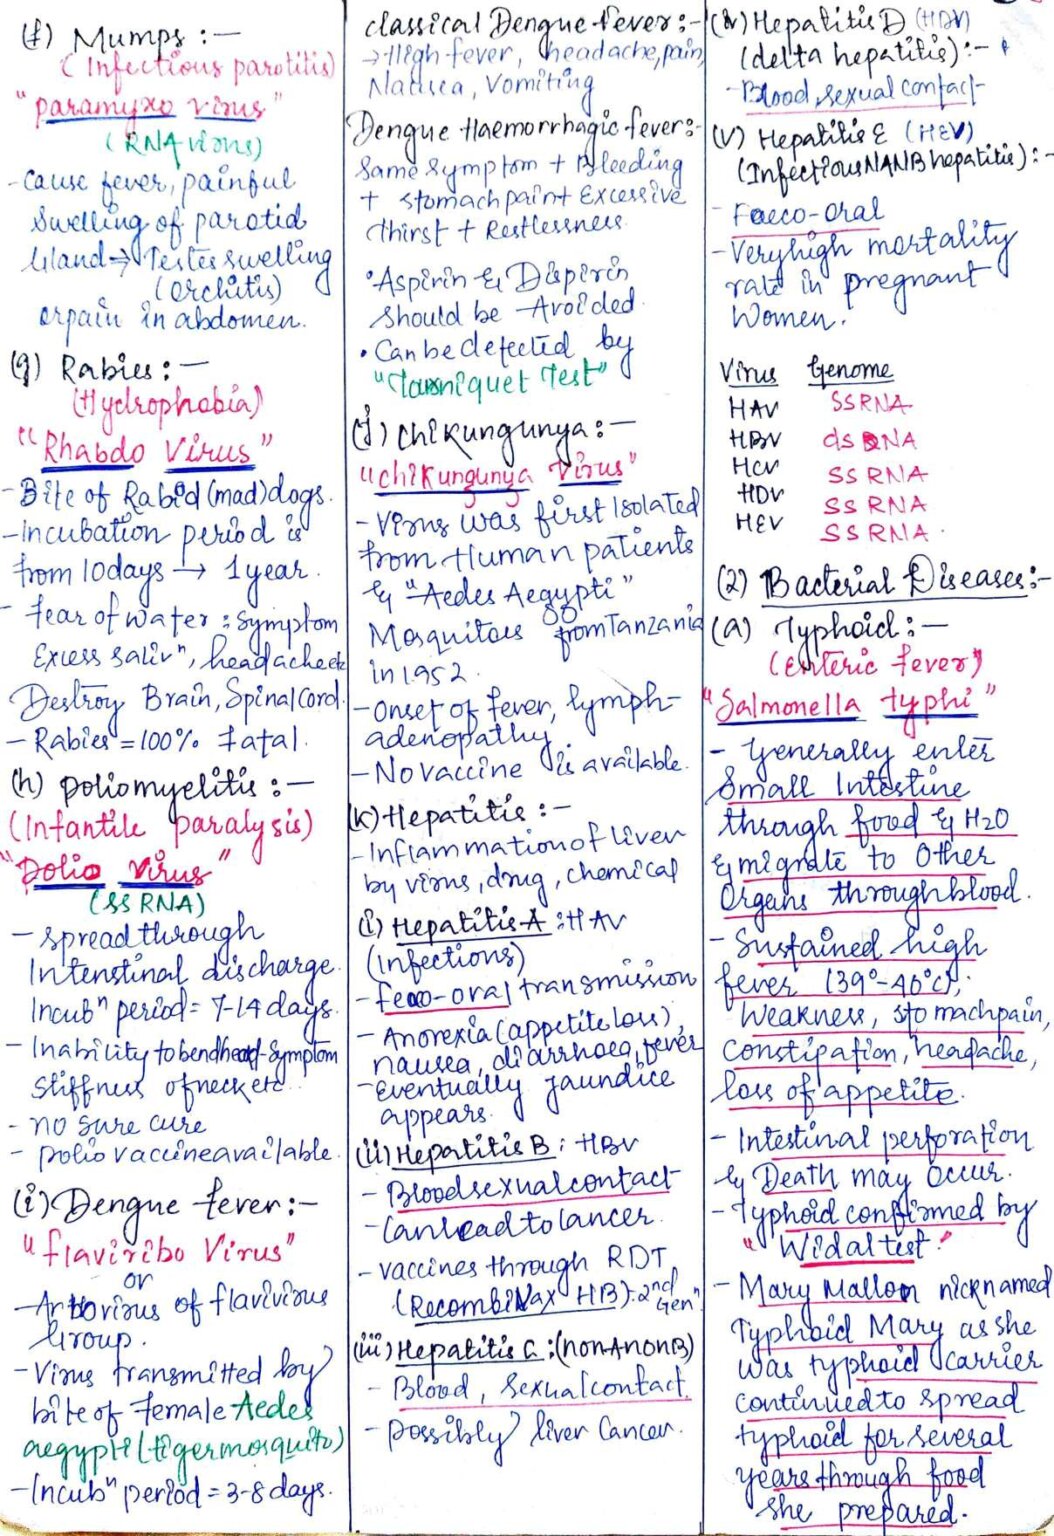 (f) Mumps :—
(Infectious parotitis)
"paramyxo virus"
(RNA virus)
- cause fever, painful
swelling of parotid
Gland → Testes swelling
(orchitis)
or pain in abdomen.
(g) Rabies :—
(Hydrophobia)
"Rhabdo Virus"
- Bite of Rabid (mad) dogs.
- Incubation period is
from 10 days → 1 year.
- fear of water : symptom
Excess salivⁿ, headache etc
Destroy Brain, Spinal Cord.
- Rabies = 100% Fatal.
(h) Poliomyelitis :—
(Infantile paralysis)
"Polio Virus"
(SS RNA)
- spread through
Intenstinal discharge.
Incubⁿ period = 7-14 days.
- Inability to bend head - Symptom
Stiffness of neck etc.
- no sure cure
- polio vaccine available.
(i) Dengue fever :—
"flaviribo Virus"
or
- Arbovirus of flavivirus
Group.
- Virus transmitted by
bite of Female Aedes
aegypti (tiger mosquito)
- Incubⁿ period = 3-8 days.
classical Dengue fever :-
→ High fever, headache, pain,
Nausea, Vomiting
Dengue Haemorrhagic fever :-
Same symptom + Bleeding
+ stomach pain + Excessive
thirst + Restlessness.
• Aspirin & Dispirin
should be Avoided.
• Can be detected by
"Tourniquet Test"
(j) Chikungunya :—
"chikungunya Virus"
- Virus was first Isolated
from Human patients
& "Aedes Aegypti"
Mosquitoes from Tanzania
in 1952.
- Onset of fever, lymph-
adenopathy.
- No vaccine is available.
(k) Hepatitis :—
- Inflammation of Liver
by virus, drug, chemical
(i) Hepatitis-A : HAV
(Infections)
- feco-oral transmission
- Anorexia (appetite loss),
nausea, diarrhoea, fever
- Eventually jaundice
appears.
(ii) Hepatitis B : HBV
- Blood sexual contact
- Can lead to Cancer.
- vaccines through RDT
(Recombivax HB) : 2nd Genⁿ
(iii) Hepatitis C : (non A non B)
- Blood, sexual contact.
- possibly liver Cancer.
Hepatitis D (HDV)
(delta hepatitis) :-
- Blood, sexual contact
(V) Hepatitis E (HEV)
(Infectious NANB hepatitis) :-
- Faeco-oral
- Very high mortality
rate in pregnant
Women.
Virus Genome
HAV SS RNA
HBV ds DNA
HCV SS RNA
HDV SS RNA
HEV SS RNA.
(2) Bacterial Diseases :-
(a) Typhoid :—
(Enteric fever)
"Salmonella typhi"
- Generally enter
Small Intestine
through food & H2O
& migrate to Other
Organs through blood.
- Sustained high
fever (39°-40°C),
Weakness, stomach pain,
constipation, headache,
loss of appetite.
- Intestinal perforation
& Death may Occur.
- Typhoid confirmed by
"Widal test."
- Mary Mallon nicknamed
Typhoid Mary as she
was typhoid Carrier
continued to spread
typhoid for several
years through food
she prepared.